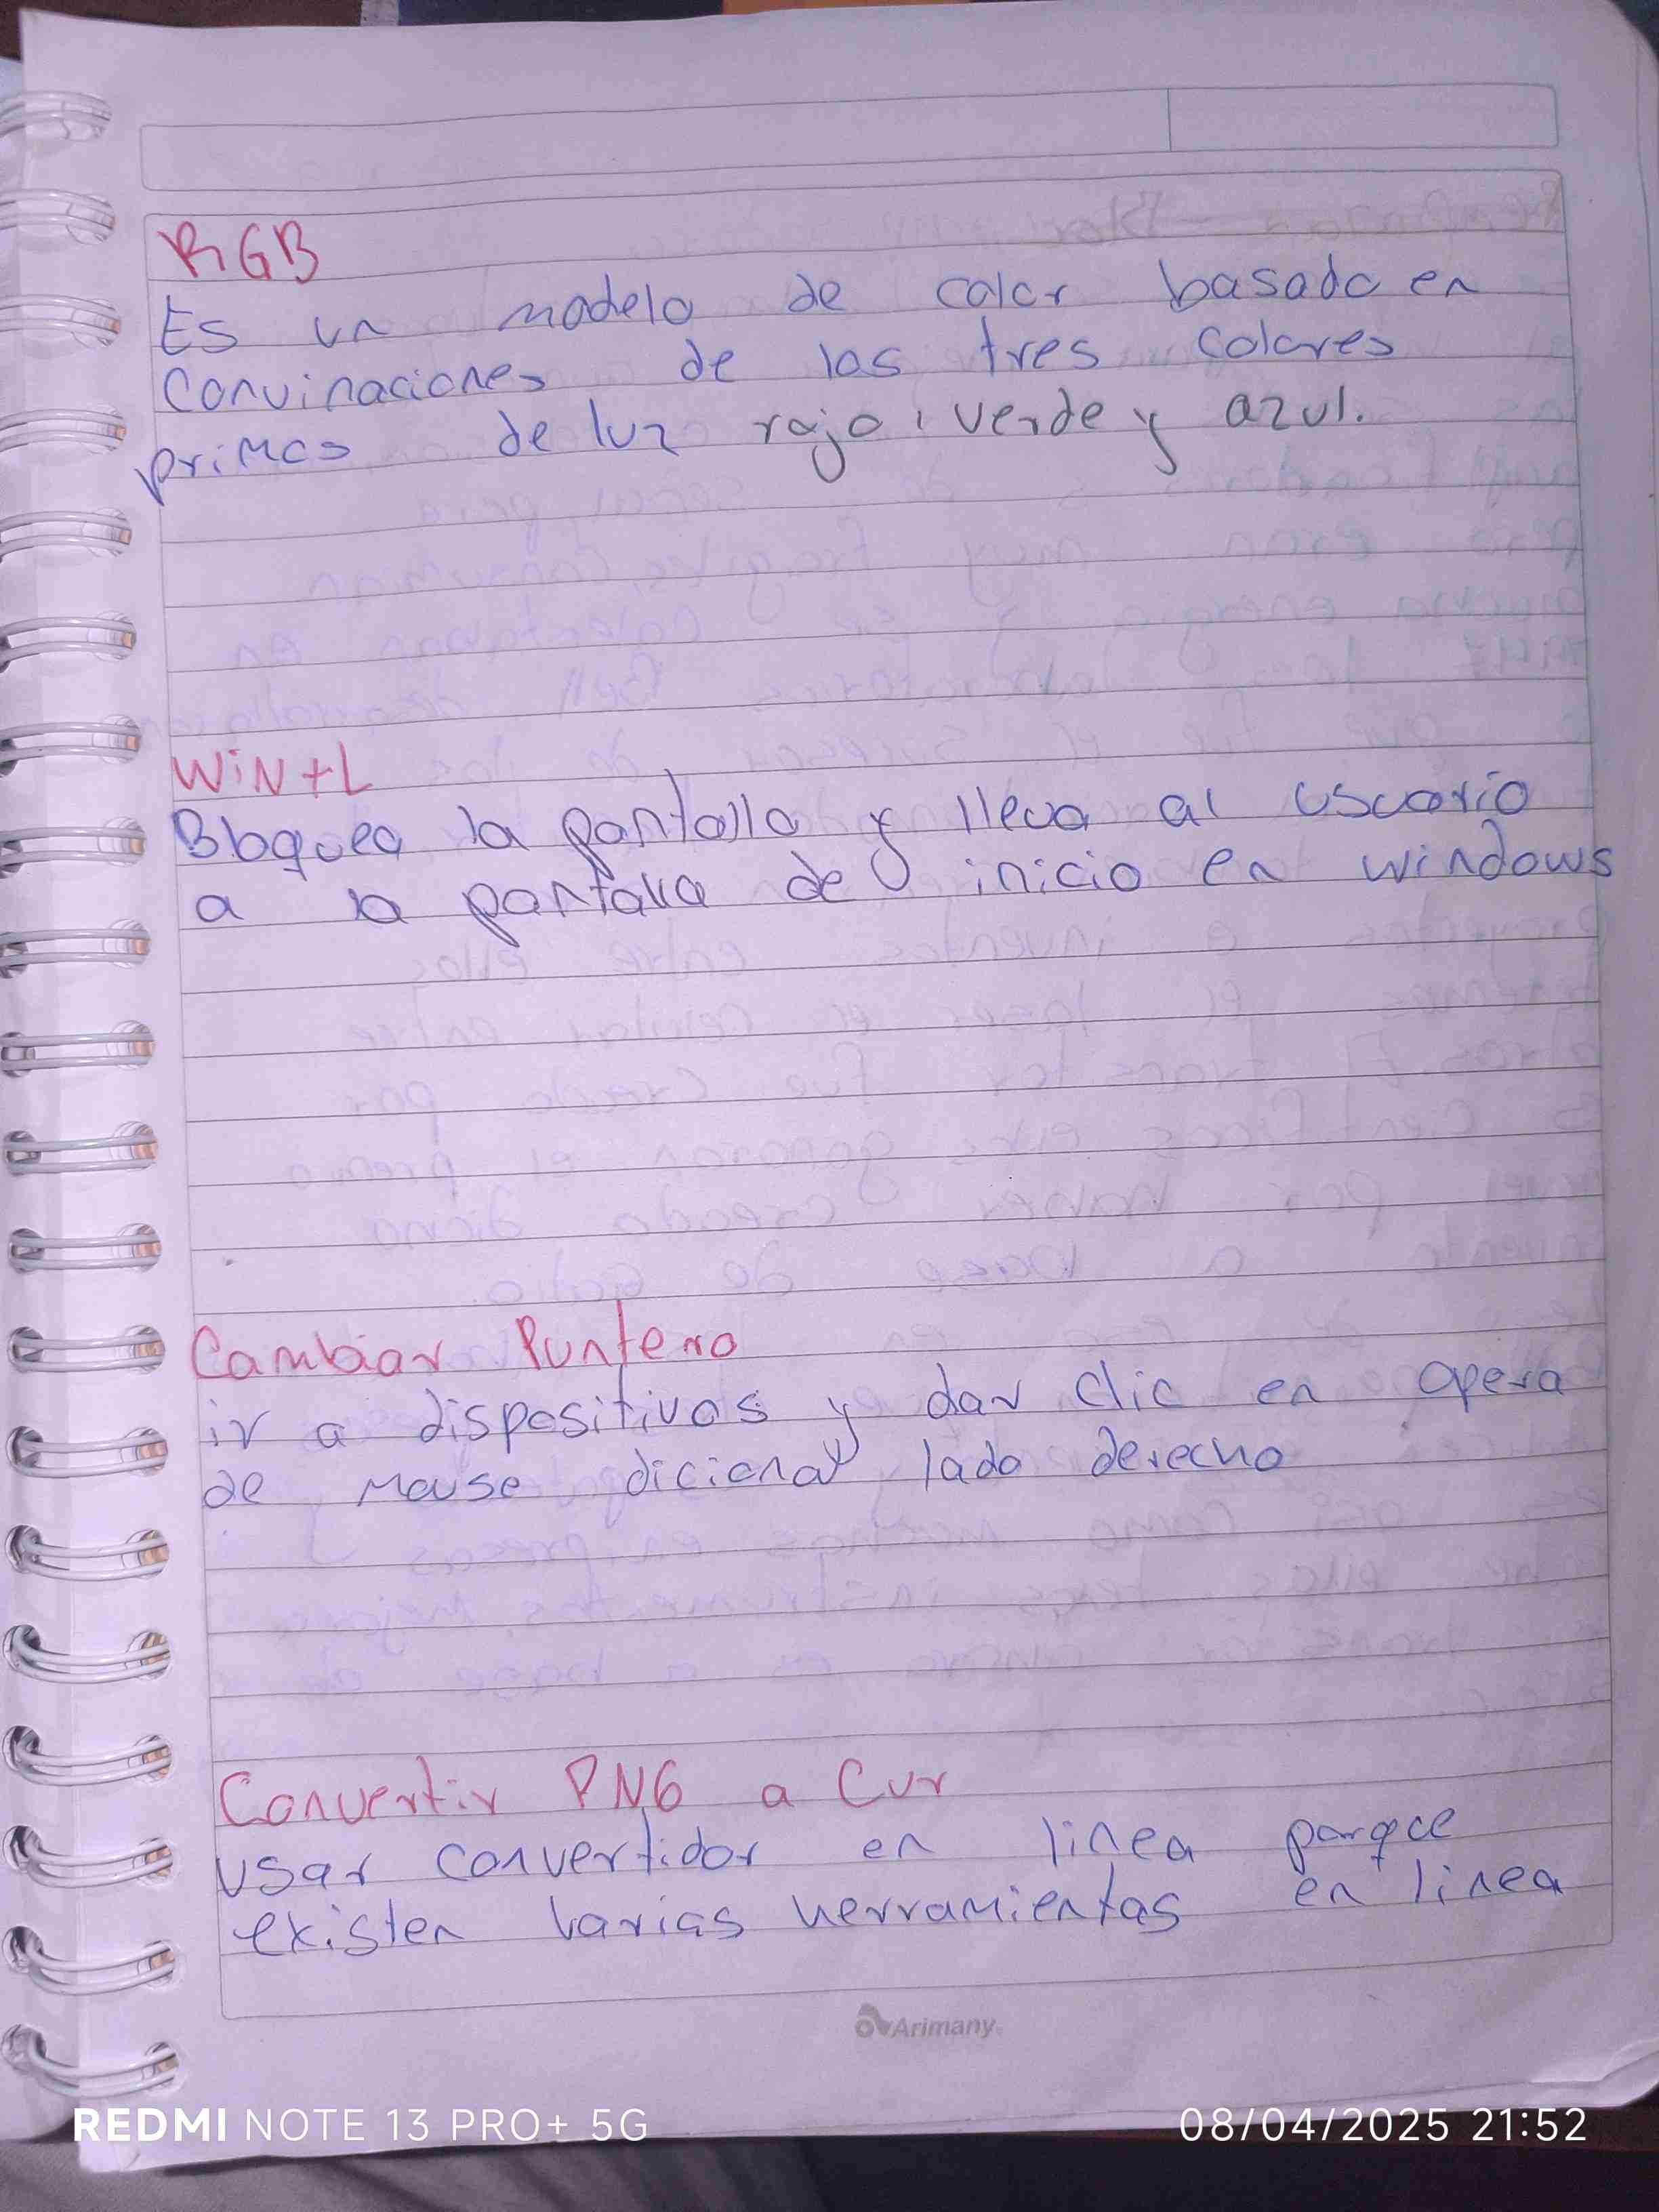 RGB
Es un modelo de color basado en
Convinaciones de los tres colores
primos de luz rojo, verde y azul.
WiN+L
Bloquea la pantalla y lleva al usuario
a la pantalla de inicio en windows
Cambiar Puntero
ir a dispositivos y dar clic en opera
de mouse dicional lado derecho
Convertir PNG a Cur
usar convertidor en linea porqce
existen varias herramientas en linea
Arimany
REDMI NOTE 13 PRO+ 5G
08/04/2025 21:52